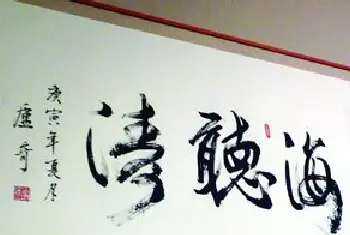 海聽濤
庚寅年夏月
盧奇